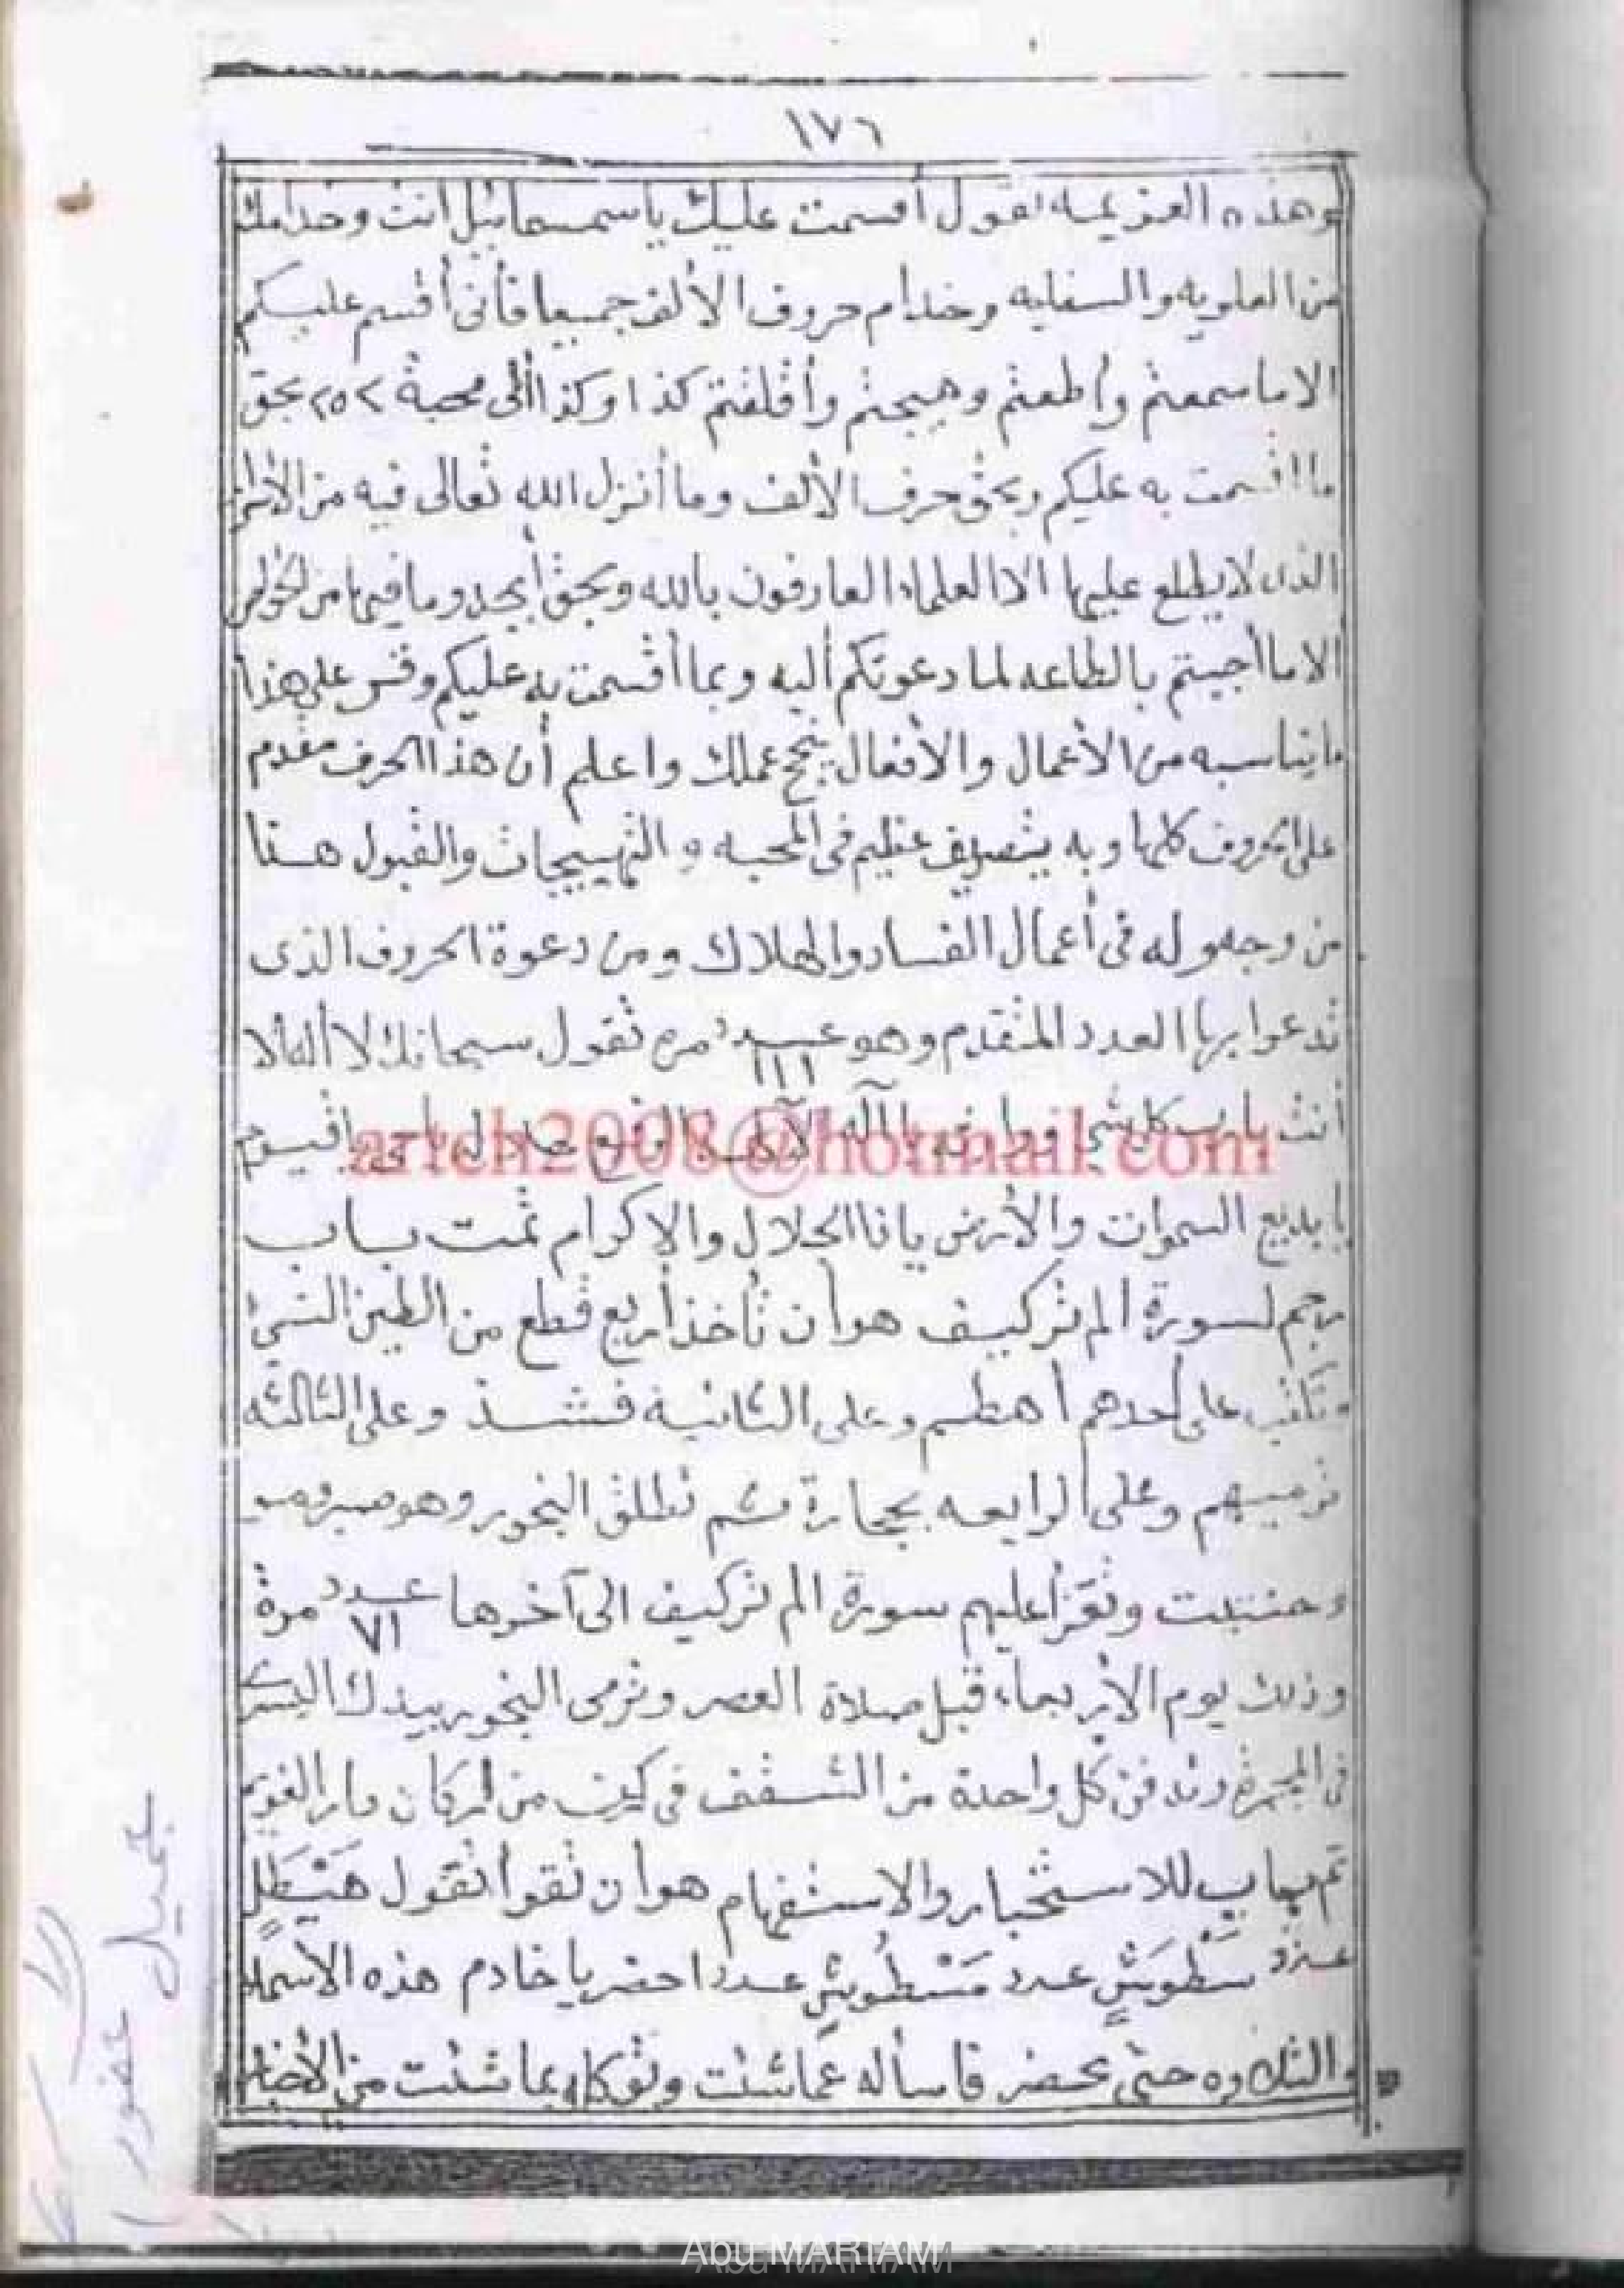 ١٧٦
وهذه العزيمه تقول أقسمت عليك ياسمسمائيل أنت وخدامك
من العلويه والسفليه وخدام حروف الألف جميعا فأنى أقسم عليكم
الاماسمعتم وأطعتم وهيجتم وأقلقتم كذا وكذا ألى محبة بحق
ما اقسمت به عليكم وبحق حرف الألف وما أنزل الله تعالى فيه من الأسرار
الذى لايطلع عليها الا العلماء العارفون بالله وبحق أبجد وما فيها من الخواص
الاما أجبتم بالطاعه لما دعوتكم أليه وبما أقسمت به عليكم وقس على هذا
مايناسبه من الأعمال والأفعال ينجح عملك واعلم أن هذا الحرف مقدم
على الحروف كلها وبه يتصريف عظيم فى المحبه و التهييجات والقبول هذا
من وجه وله فى أعمال الفساد والهلاك ومن دعوة الحروف الذى
تدعوا بها العدد المتقدم وهو عدد ١١١ مره تقول سبحانك لا أله ألا
أنت يارب كل شئ ياحى ياقيوم
يا بديع السموات والأرض ياذا الجلال والاكرام تمت باب
رجم لسورة الم تركيف هو أن تأخذ أربع قطع من الطين النىئ
وتكتب على أحدهم أهطم وعلى الثانية فشذ وعلى الثالثه
ترميهم وعلى الرابعه بحجارة ثم تطلق البخور وهو صبر ومر
وحنتيت وتقرأ عليهم سورة الم تركيف الى آخرها عدد ٧١ مرة
وذلك يوم الأربعاء قبل صلاة العصر وترمى البخور بيدك اليسرى
فى المجمرة وتدفن كل واحدة من الشقف فى ركن من أركان دار
تم باب للاستخبار والاستفهام هو أن تقرأ تقول هَيْطَلٍ
عدد سَطْوَشٍ عدد مَسْطُوشٍ عدد احضر يا خادم هذه الأسماء
والتلاوه حتى يحضر فاسأله عماشئت وتوكله بماشئت من الأخبار
artch2008@hotmail.com
Abu MARIAM